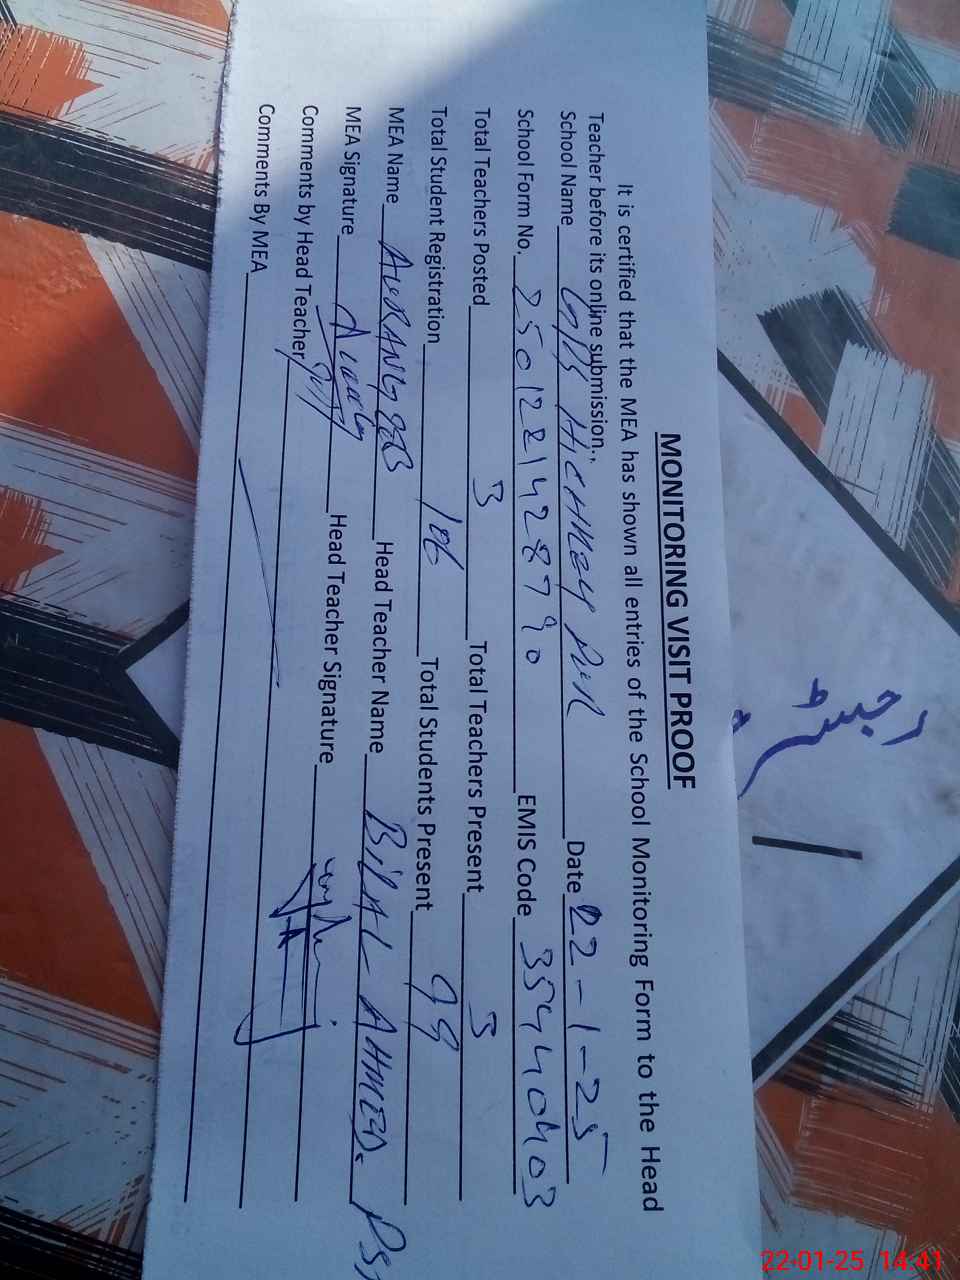 MONITORING VISIT PROOF
It is certified that the MEA has shown all entries of the School Monitoring Form to the Head
Teacher before its online submission..
School Name GPS Date 22-1-25
School Form No. 2501221428790 EMIS Code 35440403
Total Teachers Posted 3 Total Teachers Present 3
Total Student Registration 106 Total Students Present 99
MEA Name AURANGZEB Head Teacher Name BILAL AHMED. PST
MEA Signature Head Teacher Signature
Comments by Head Teacher
Comments By MEA
رجسٹر
22-01-25 14:41